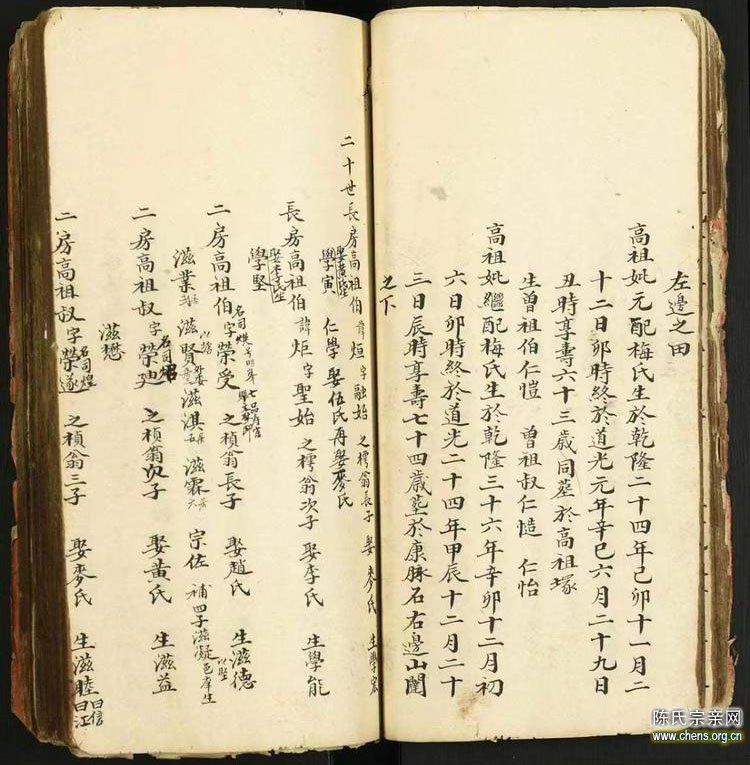 左邊之田
高祖妣元配梅氏生於乾隆二十四年己卯十一月二
十二日卯時終於道光元年辛巳六月二十九日
丑時享壽六十三歲同墓於高祖塚
生曾祖伯仁愷 曾祖叔仁慥 仁怡
高祖妣繼配梅氏生於乾隆三十六年辛卯十二月初
六日卯時終於道光二十四年甲辰十二月二十
三日辰時享壽七十四歲墓於康脉石右邊山閣
之下
二十世長房高祖伯諱烜字融始 之樗翁長子 娶麥氏 生學宏
學寅 仁學 娶伍氏再娶麥氏
長房高祖伯諱炬字聖始 之樗翁次子 娶李氏 生學能
學堅
名司煥
二房高祖伯字榮受 之楨翁長子 娶趙氏 生滋德
滋業 滋賢 滋淇 滋霖 宗佐 補四子滋凝
二房高祖叔字榮 之楨翁次子 娶黃氏 生滋益
滋懋
名司煌
二房高祖叔字榮遂 之楨翁三子 娶麥氏 生滋睦
曰信
曰江
陈氏宗亲网
www.chens.org.cn